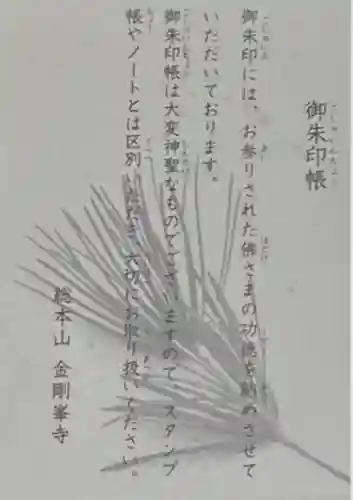 御朱印帳
御朱印には、お参りされた佛さまの功徳を納めさせて
いただいております。
御朱印帳は大変神聖なものでございますので、スタンプ
帳やノートとは区別いただき、大切にお取り扱いください。
総本山 金剛峯寺